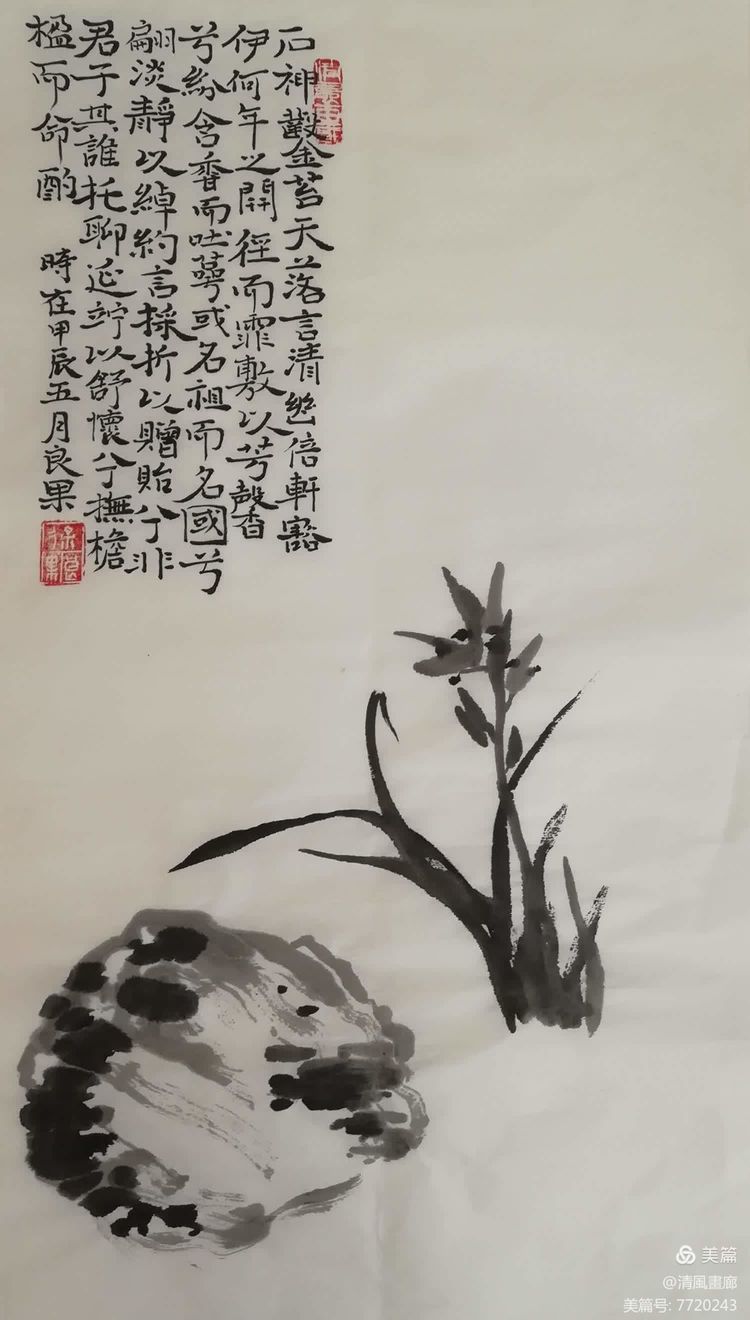 石神鑿金苔天落言清幽倍軒豁
伊何年之開徑而霏敷以芳馨
兮紛含香而吐萼或名祖而名國兮
翩淡靜以綽約言採折以贈貽兮非
君子其誰托聊延竚以舒懷兮撫檐
楹而命酌 時在甲辰五月良果
美篇
@清風畫廊
美篇号: 7720243